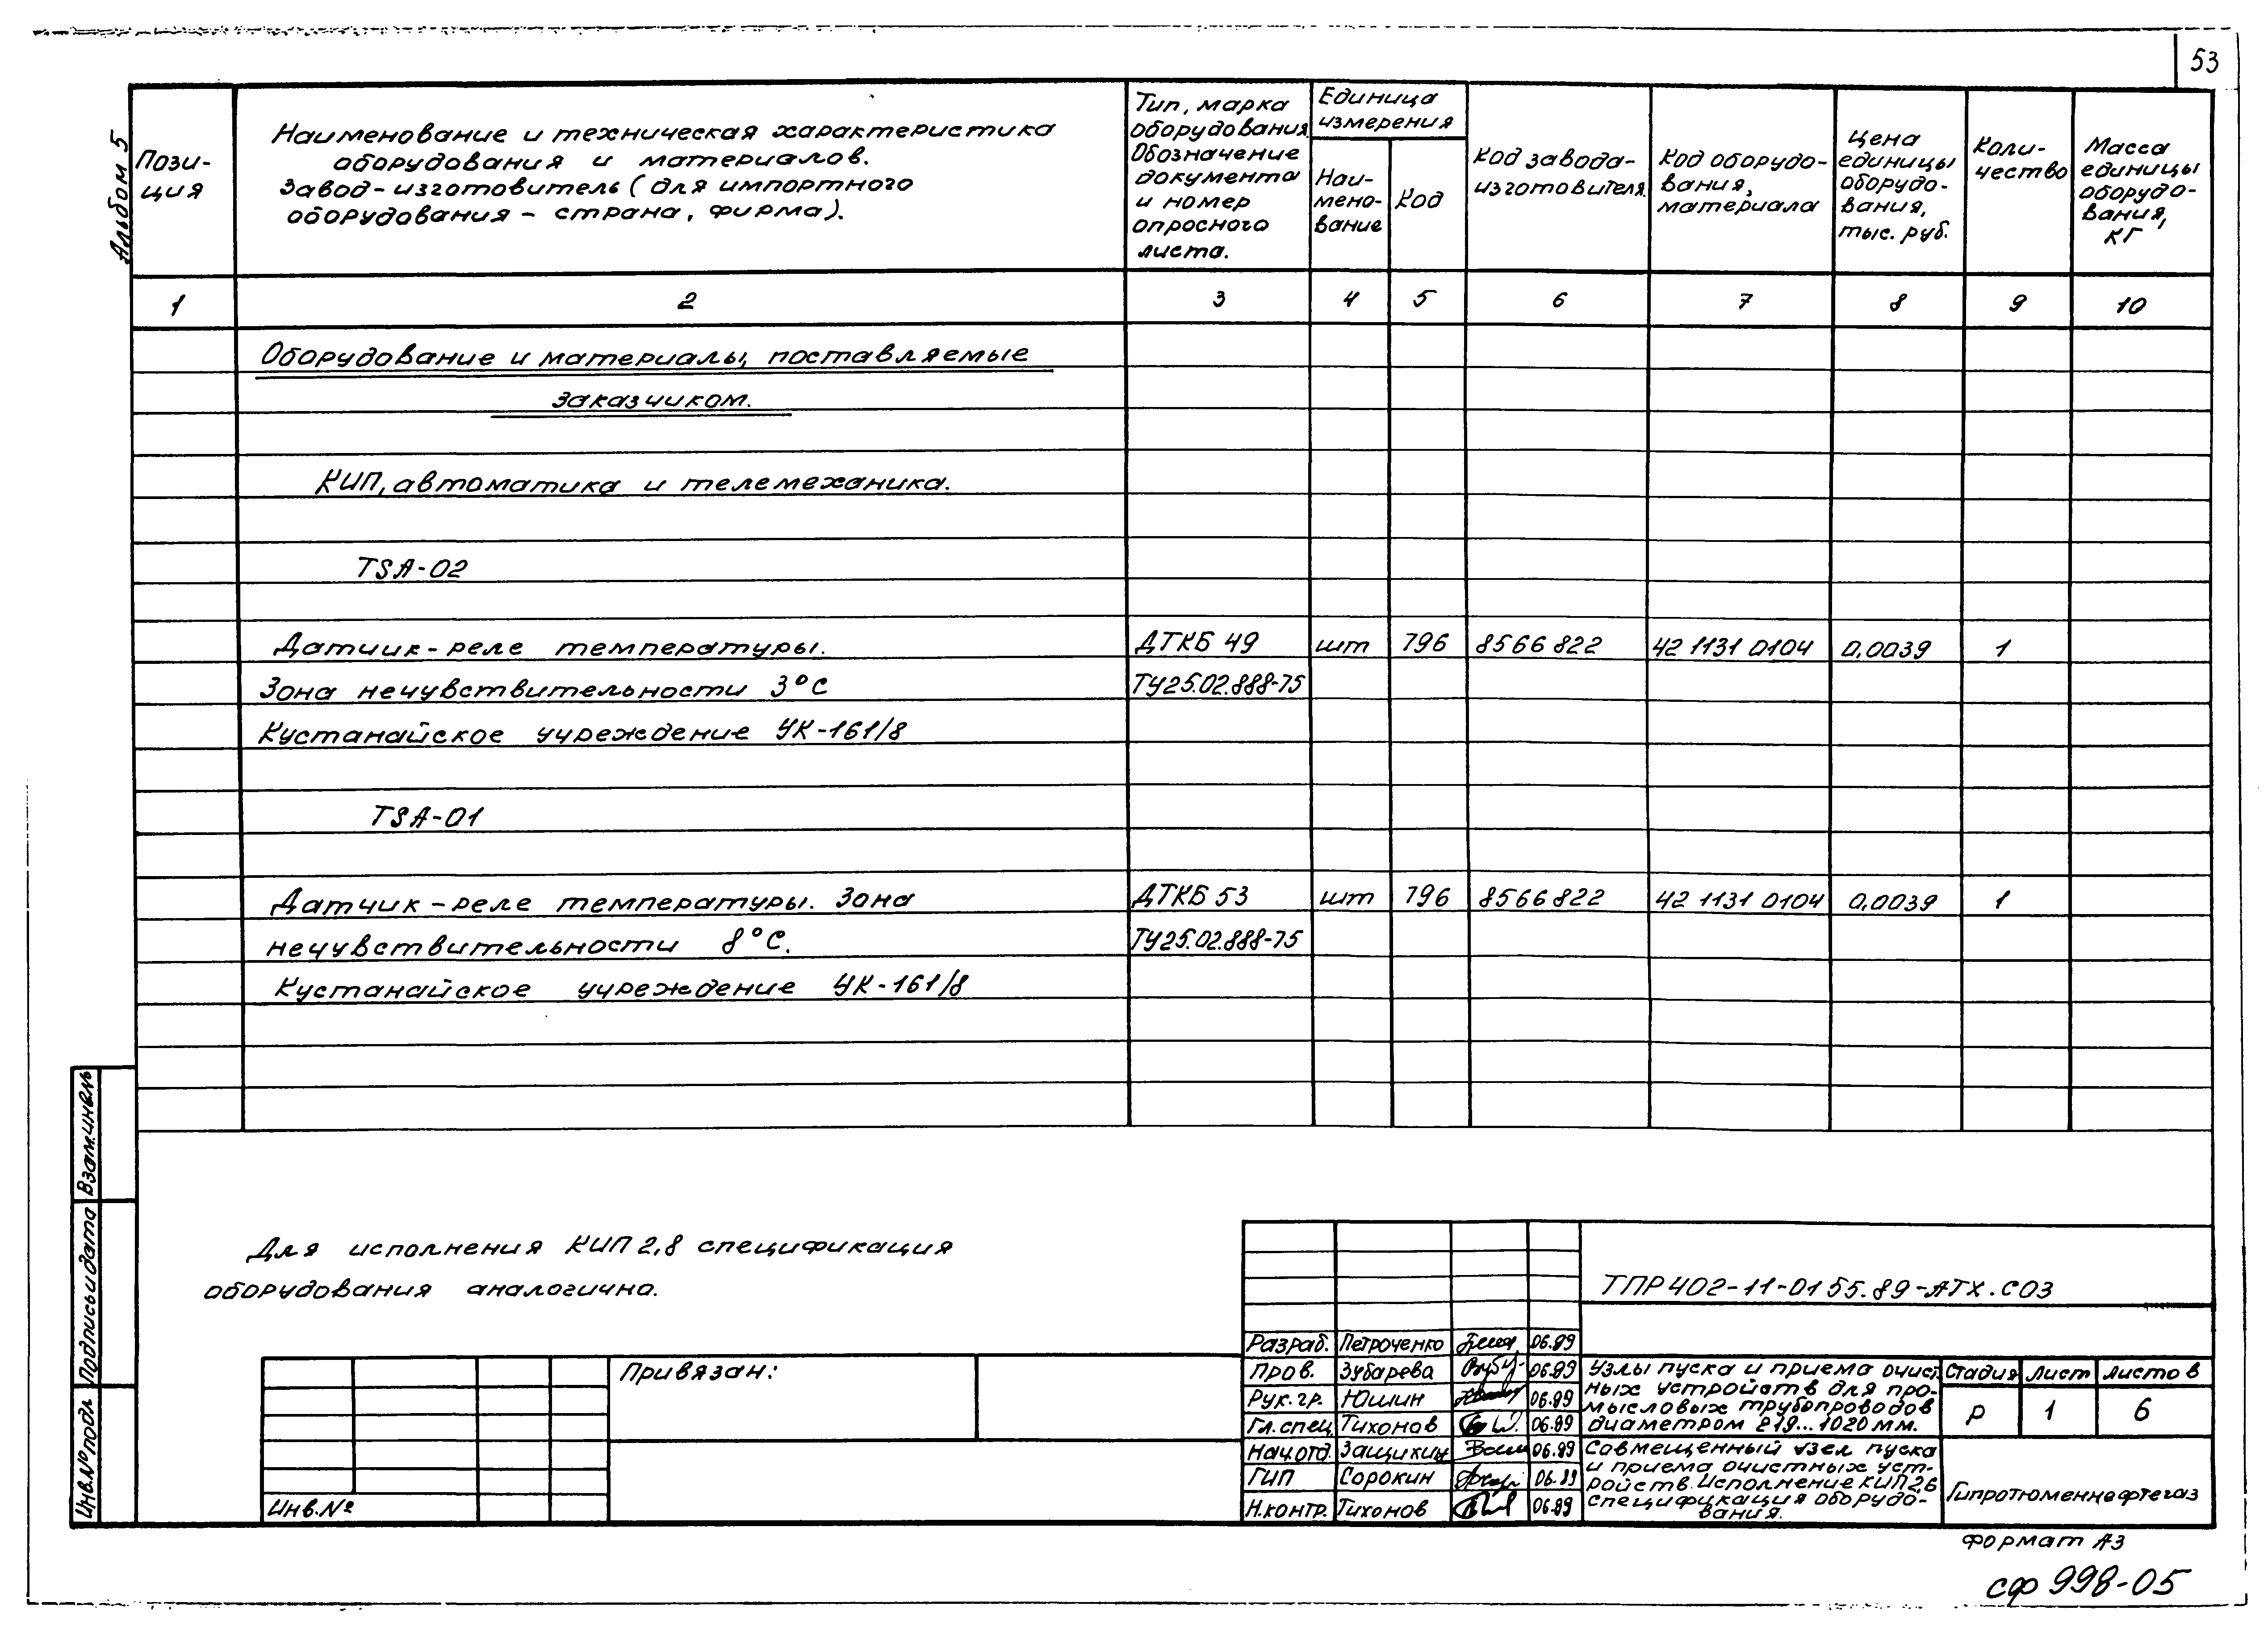 53
Альбом 5
Пози-
ция
Наименование и техническая характеристика
оборудования и материалов.
Завод-изготовитель (для импортного
оборудования - страна, фирма).
Тип, марка
оборудования.
Обозначение
документа
и номер
опросного
листа.
Единица
измерения
Наи-
мено-
вание
Код
Код завода-
изготовителя.
Код оборудо-
вания,
материала
Цена
единицы
оборудо-
вания,
тыс. руб.
Коли-
чество
Масса
единицы
оборудо-
вания,
кг
1 2 3 4 5 6 7 8 9 10
Оборудование и материалы, поставляемые
заказчиком.
КИП, автоматика и телемеханика.
TSA-02
Датчик-реле температуры. ДТКБ 49 шт 796 8566822 42 1131 0104 0,0039 1
Зона нечувствительности 3°С ТУ25.02.888-75
Кустанайское учреждение УК-161/8
TSA-01
Датчик-реле температуры. Зона ДТКБ 53 шт 796 8566822 42 1131 0104 0,0039 1
нечувствительности 8°С. ТУ25.02.888-75
Кустанайское учреждение УК-161/8
Для исполнения КИП 2,8 спецификация
оборудования аналогична.
Взам.инв№
Подпись и дата
Инв.№ подл.
Привязан:
Инв.№
ТПР 402-11-0155.89-АТХ.СО3
Разраб. Петроченко 06.89
Пров. Зубарева 06.89
Рук.гр. Юшин 06.89
Гл.спец Тихонов 06.89
Нач.отд. Защихин 06.89
ГИП Сорокин 06.89
Н.контр. Тихонов 06.89
Узлы пуска и приема очист
ных устройств для про-
мысловых трубопроводов
диаметром 219...1020 мм.
Стадия Лист Листов
Р 1 6
Совмещенный узел пуска
и приема очистных уст-
ройств. Исполнение КИП 2,6
спецификация оборудо-
вания.
Гипротюменнефтегаз
Формат А3
сф 998-05